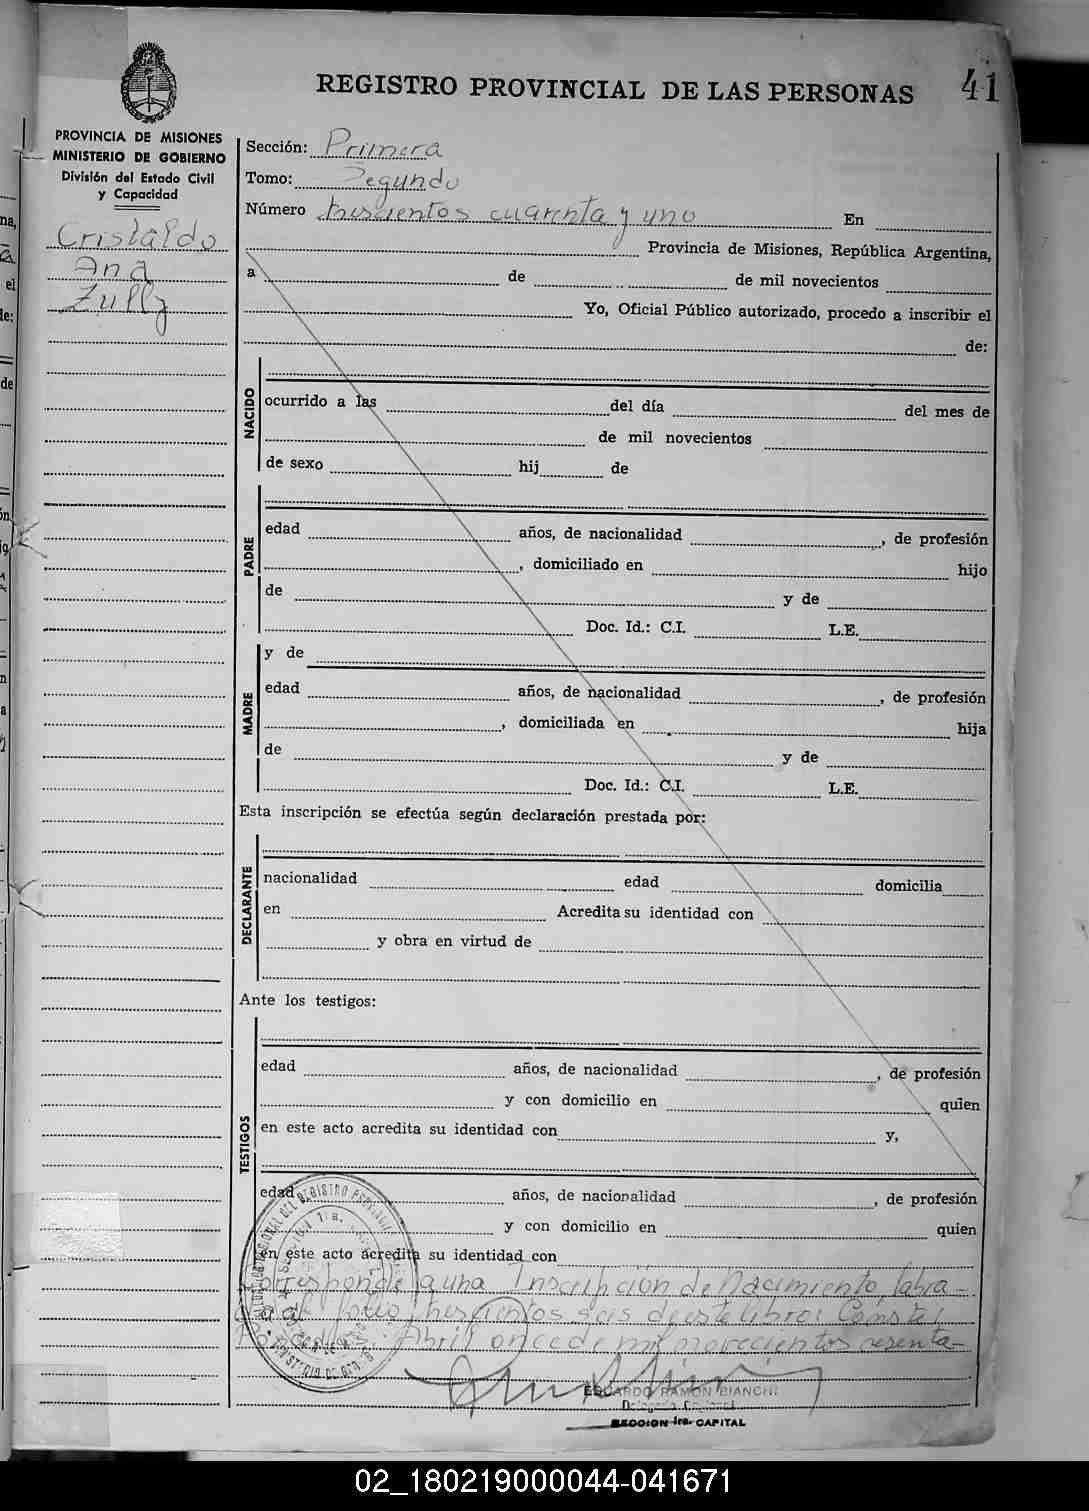 REGISTRO PROVINCIAL DE LAS PERSONAS
41
PROVINCIA DE MISIONES
MINISTERIO DE GOBIERNO
División del Estado Civil
y Capacidad
Cristaldo
Ana
Zully
Sección: Primera
Tomo: Segundo
Número trescientos cuarenta y uno En
Provincia de Misiones, República Argentina,
a de de mil novecientos
Yo, Oficial Público autorizado, procedo a inscribir el
de:
NACIDO
ocurrido a las del día del mes de
de mil novecientos
de sexo hij de
PADRE
edad años, de nacionalidad , de profesión
, domiciliado en hijo
de y de
Doc. Id.: C.I. L.E.
MADRE
y de
edad años, de nacionalidad , de profesión
, domiciliada en hija
de y de
Doc. Id.: C.I. L.E.
Esta inscripción se efectúa según declaración prestada por:
DECLARANTE
nacionalidad edad domicilia
en Acredita su identidad con
y obra en virtud de
Ante los testigos:
TESTIGOS
edad años, de nacionalidad , de profesión
y con domicilio en quien
en este acto acredita su identidad con y,
edad años, de nacionalidad , de profesión
y con domicilio en quien
en este acto acredita su identidad con
Corresponde a una Inscripción de Nacimiento, labra-
folio trescientos seis de este libro: Conste!
Abril once de mil novecientos sesenta-
EDUARDO RAMON BIANCHI
SECCION 1ra. CAPITAL
02_180219000044-041671